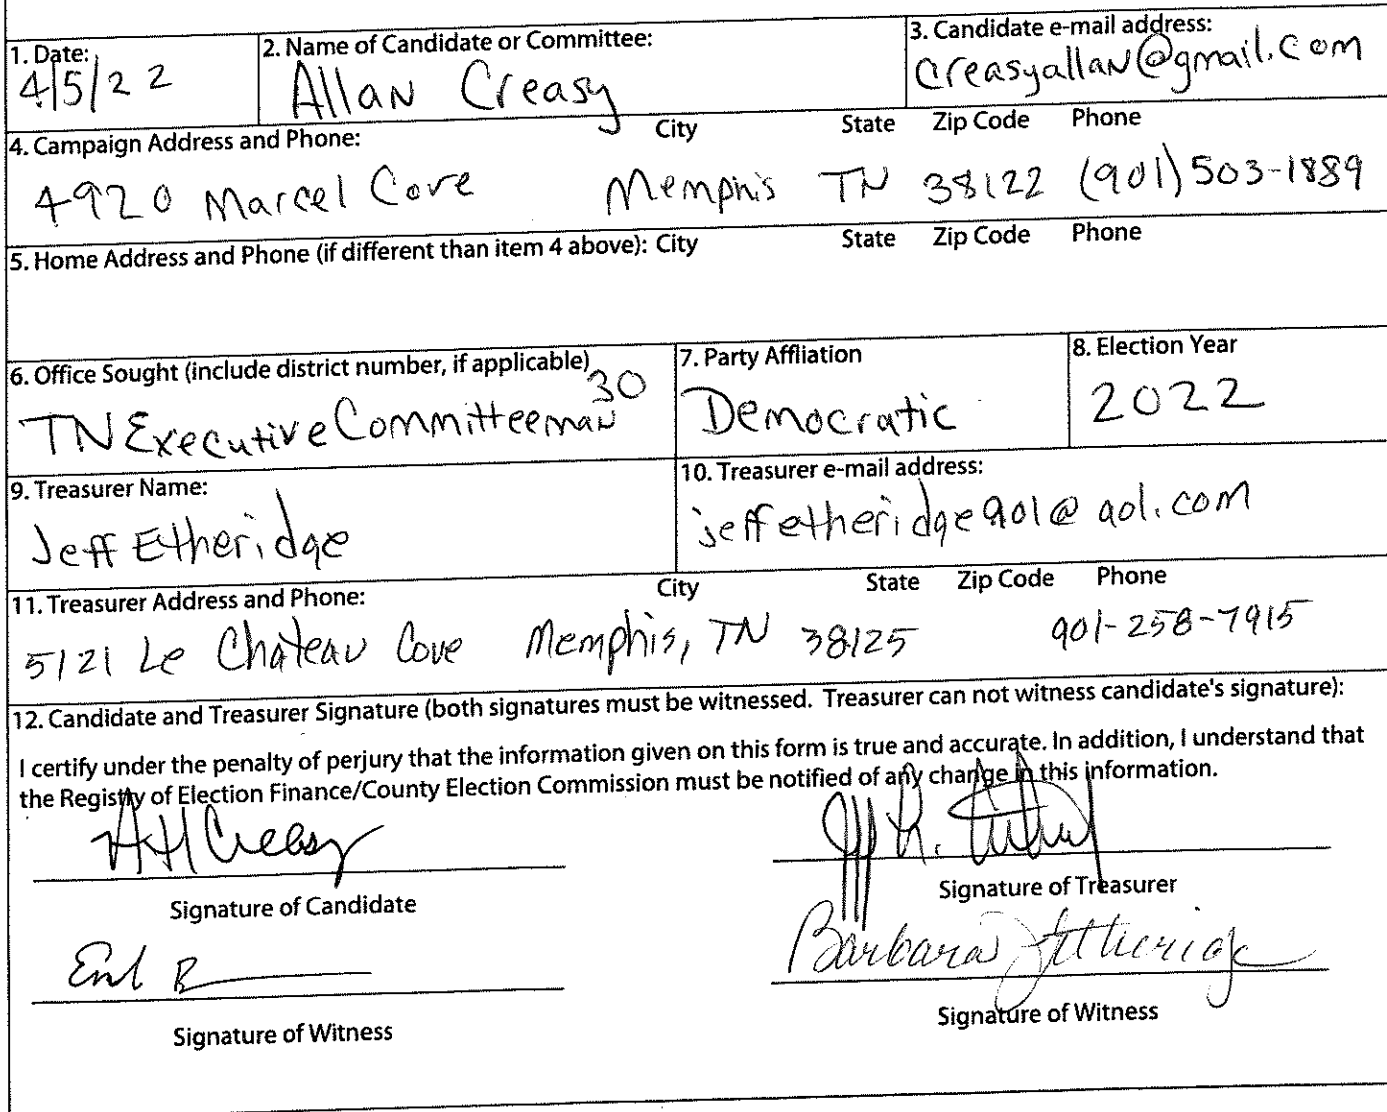 1. Date: 2. Name of Candidate or Committee: 3. Candidate e-mail address:
4/5/22 Allan Creasy creasyallan@gmail.com
4. Campaign Address and Phone: City State Zip Code Phone
4920 Marcel Cove Memphis TN 38122 (901)503-1889
5. Home Address and Phone (if different than item 4 above): City State Zip Code Phone
6. Office Sought (include district number, if applicable) 7. Party Affliation 8. Election Year
TN Executive Committeeman 30 Democratic 2022
9. Treasurer Name: 10. Treasurer e-mail address:
Jeff Etheridge jeffetheridge901@aol.com
11. Treasurer Address and Phone: City State Zip Code Phone
5121 Le Chateau Cove Memphis, TN 38125 901-258-7915
12. Candidate and Treasurer Signature (both signatures must be witnessed. Treasurer can not witness candidate's signature):
I certify under the penalty of perjury that the information given on this form is true and accurate. In addition, I understand that
the Registry of Election Finance/County Election Commission must be notified of any change in this information.
AH Creasy
Signature of Candidate Signature of Treasurer
Barbara Etheridge
Signature of Witness Signature of Witness